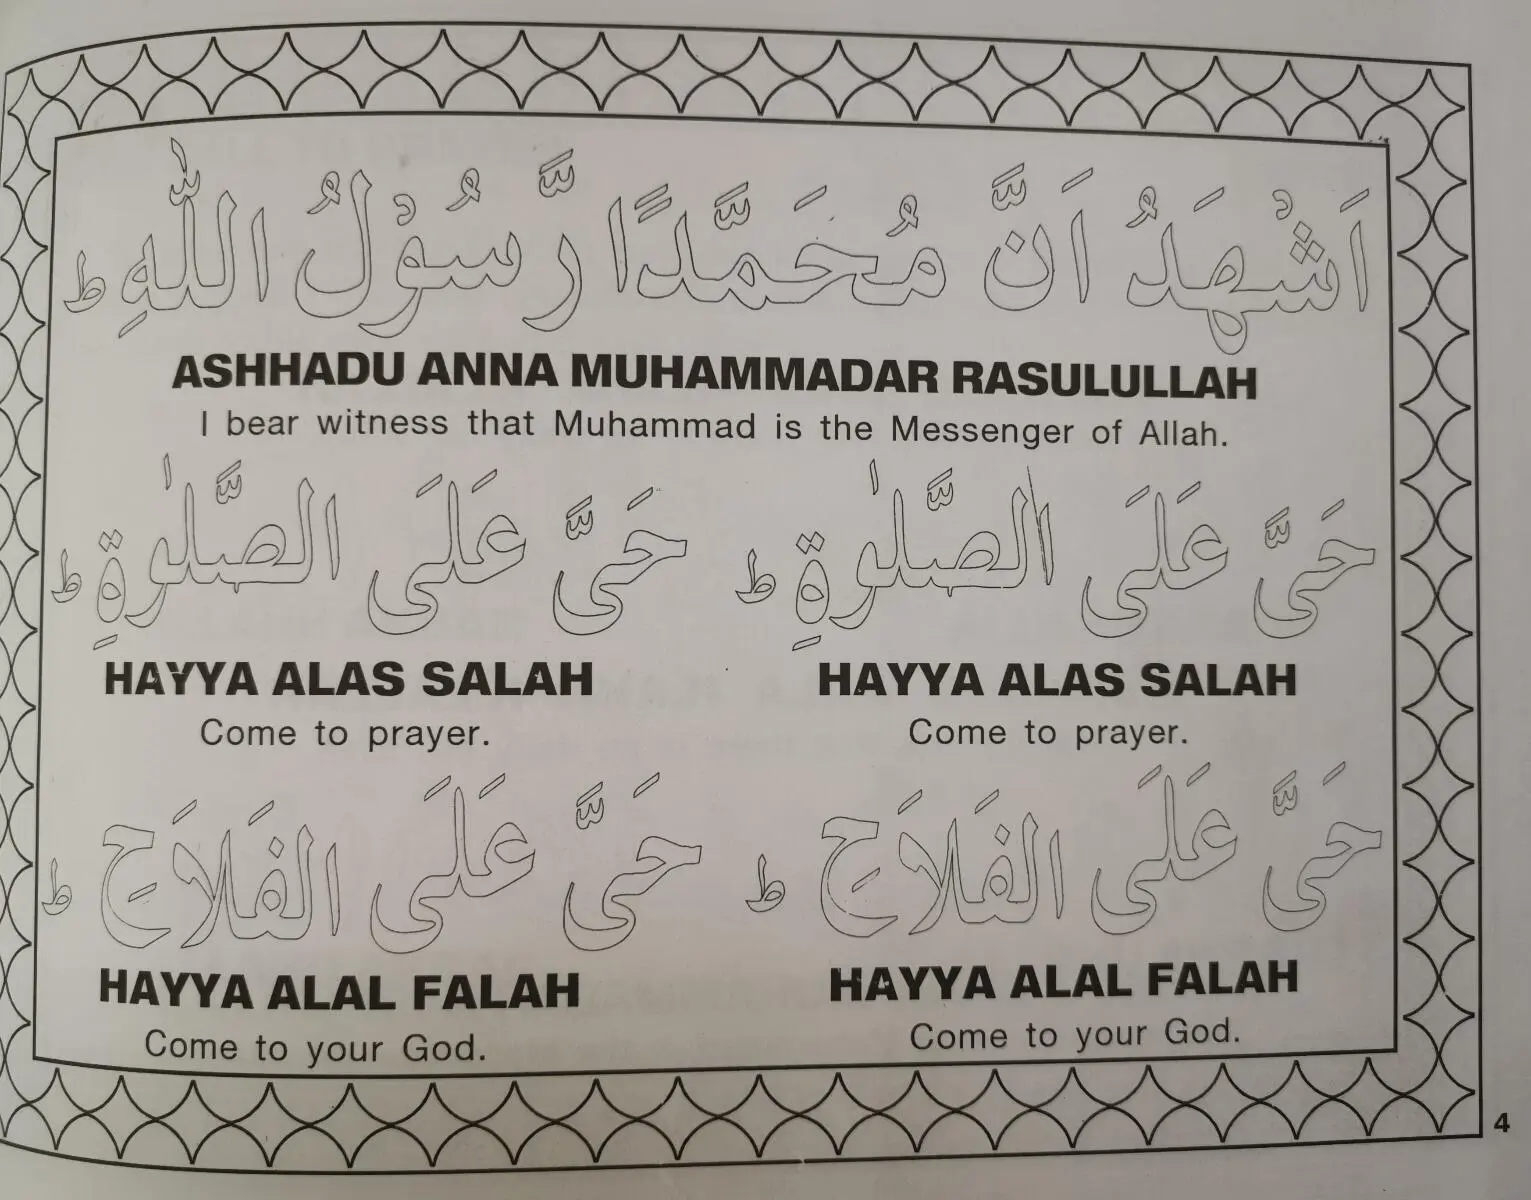 اَشْهَدُ اَنَّ مُحَمَّدًا رَّسُوْلُ اللّٰهِ ط
ASHHADU ANNA MUHAMMADAR RASULULLAH
I bear witness that Muhammad is the Messenger of Allah.
حَىَّ عَلَى الصَّلٰوةِ ط حَىَّ عَلَى الصَّلٰوةِ ط
HAYYA ALAS SALAH HAYYA ALAS SALAH
Come to prayer. Come to prayer.
حَىَّ عَلَى الفَلَاَحِ ط حَىَّ عَلَى الفَلَاَحِ ط
HAYYA ALAL FALAH HAYYA ALAL FALAH
Come to your God. Come to your God.
4